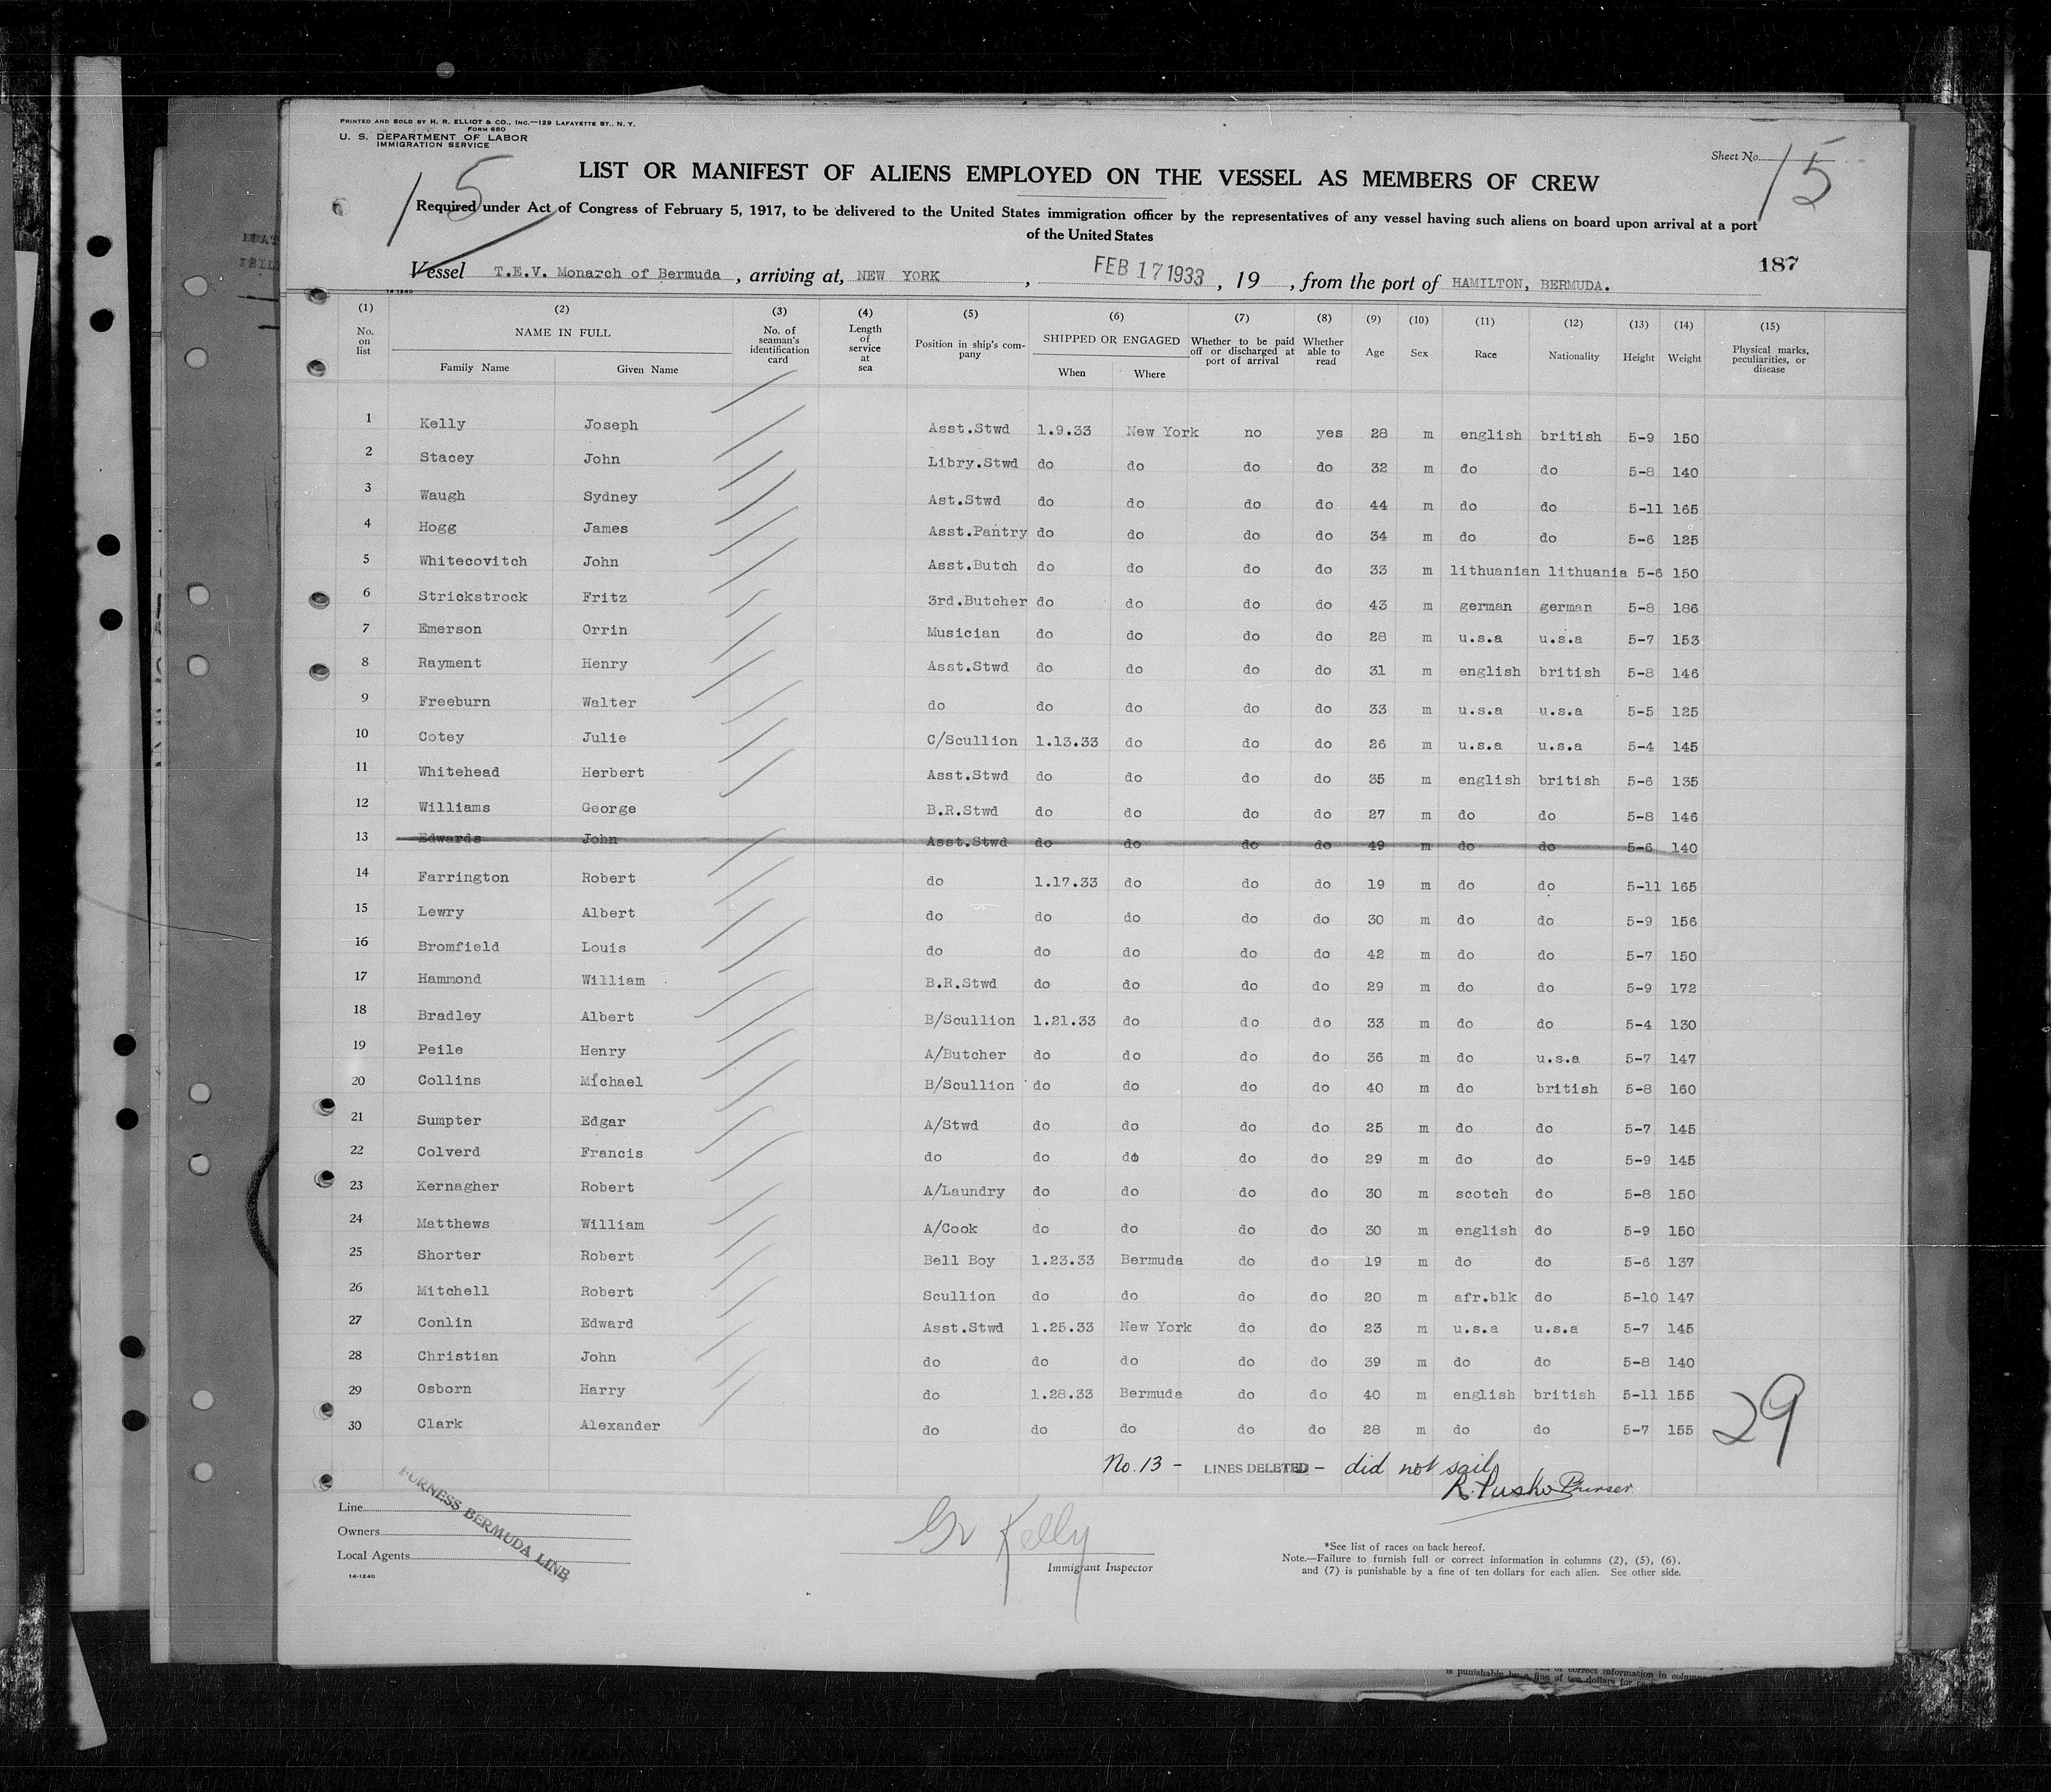 PRINTED AND SOLD BY H. R. ELLIOT & CO., INC.—129 LAFAYETTE ST., N. Y.
FORM 680
U. S. DEPARTMENT OF LABOR
IMMIGRATION SERVICE
Sheet No. 15
15
LIST OR MANIFEST OF ALIENS EMPLOYED ON THE VESSEL AS MEMBERS OF CREW
Required under Act of Congress of February 5, 1917, to be delivered to the United States immigration officer by the representatives of any vessel having such aliens on board upon arrival at a port
of the United States
187
Vessel T.E.V. Monarch of Bermuda, arriving at, NEW YORK, FEB 17 1933, 19, from the port of HAMILTON, BERMUDA.
14-1240
(1) (2) (3) (4) (5) (6) (7) (8) (9) (10) (11) (12) (13) (14) (15)
No. on list NAME IN FULL Family Name Given Name No. of seaman's identification card Length of service at sea Position in ship's company SHIPPED OR ENGAGED When Where Whether to be paid off or discharged at port of arrival Whether able to read Age Sex Race Nationality Height Weight Physical marks, peculiarities, or disease
1 Kelly Joseph Asst.Stwd 1.9.33 New York no yes 28 m english british 5-9 150
2 Stacey John Libry.Stwd do do do do 32 m do do 5-8 140
3 Waugh Sydney Ast.Stwd do do do do 44 m do do 5-11 165
4 Hogg James Asst.Pantry do do do do 34 m do do 5-6 125
5 Whitecovitch John Asst.Butch do do do do 33 m lithuanian lithuania 5-6 150
6 Strickstrock Fritz 3rd.Butcher do do do do 43 m german german 5-8 186
7 Emerson Orrin Musician do do do do 28 m u.s.a u.s.a 5-7 153
8 Rayment Henry Asst.Stwd do do do do 31 m english british 5-8 146
9 Freeburn Walter do do do do do 33 m u.s.a u.s.a 5-5 125
10 Cotey Julie C/Scullion 1.13.33 do do do 26 m u.s.a u.s.a 5-4 145
11 Whitehead Herbert Asst.Stwd do do do do 35 m english british 5-6 135
12 Williams George B.R.Stwd do do do do 27 m do do 5-8 146
13 Edwards John Asst.Stwd do do do do 49 m do do 5-6 140
14 Farrington Robert do 1.17.33 do do do 19 m do do 5-11 165
15 Lewry Albert do do do do do 30 m do do 5-9 156
16 Bromfield Louis do do do do do 42 m do do 5-7 150
17 Hammond William B.R.Stwd do do do do 29 m do do 5-9 172
18 Bradley Albert B/Scullion 1.21.33 do do do 33 m do do 5-4 130
19 Peile Henry A/Butcher do do do do 36 m do u.s.a 5-7 147
20 Collins Michael B/Scullion do do do do 40 m do british 5-8 160
21 Sumpter Edgar A/Stwd do do do do 25 m do do 5-7 145
22 Colverd Francis do do do do do 29 m do do 5-9 145
23 Kernagher Robert A/Laundry do do do do 30 m scotch do 5-8 150
24 Matthews William A/Cook do do do do 30 m english do 5-9 150
25 Shorter Robert Bell Boy 1.23.33 Bermuda do do 19 m do do 5-6 137
26 Mitchell Robert Scullion do do do do 20 m afr.blk do 5-10 147
27 Conlin Edward Asst.Stwd 1.25.33 New York do do 23 m u.s.a u.s.a 5-7 145
28 Christian John do do do do do 39 m do do 5-8 140
29 Osborn Harry do 1.28.33 Bermuda do do 40 m english british 5-11 155
30 Clark Alexander do do do do do 28 m do do 5-7 155
29
No. 13 - LINES DELETED - did not sail
R. Purser
FURNESS BERMUDA LINE
Line
Owners
Local Agents
14-1240
Kelly
Immigrant Inspector
*See list of races on back hereof.
Note.—Failure to furnish full or correct information in columns (2), (5), (6),
and (7) is punishable by a fine of ten dollars for each alien. See other side.